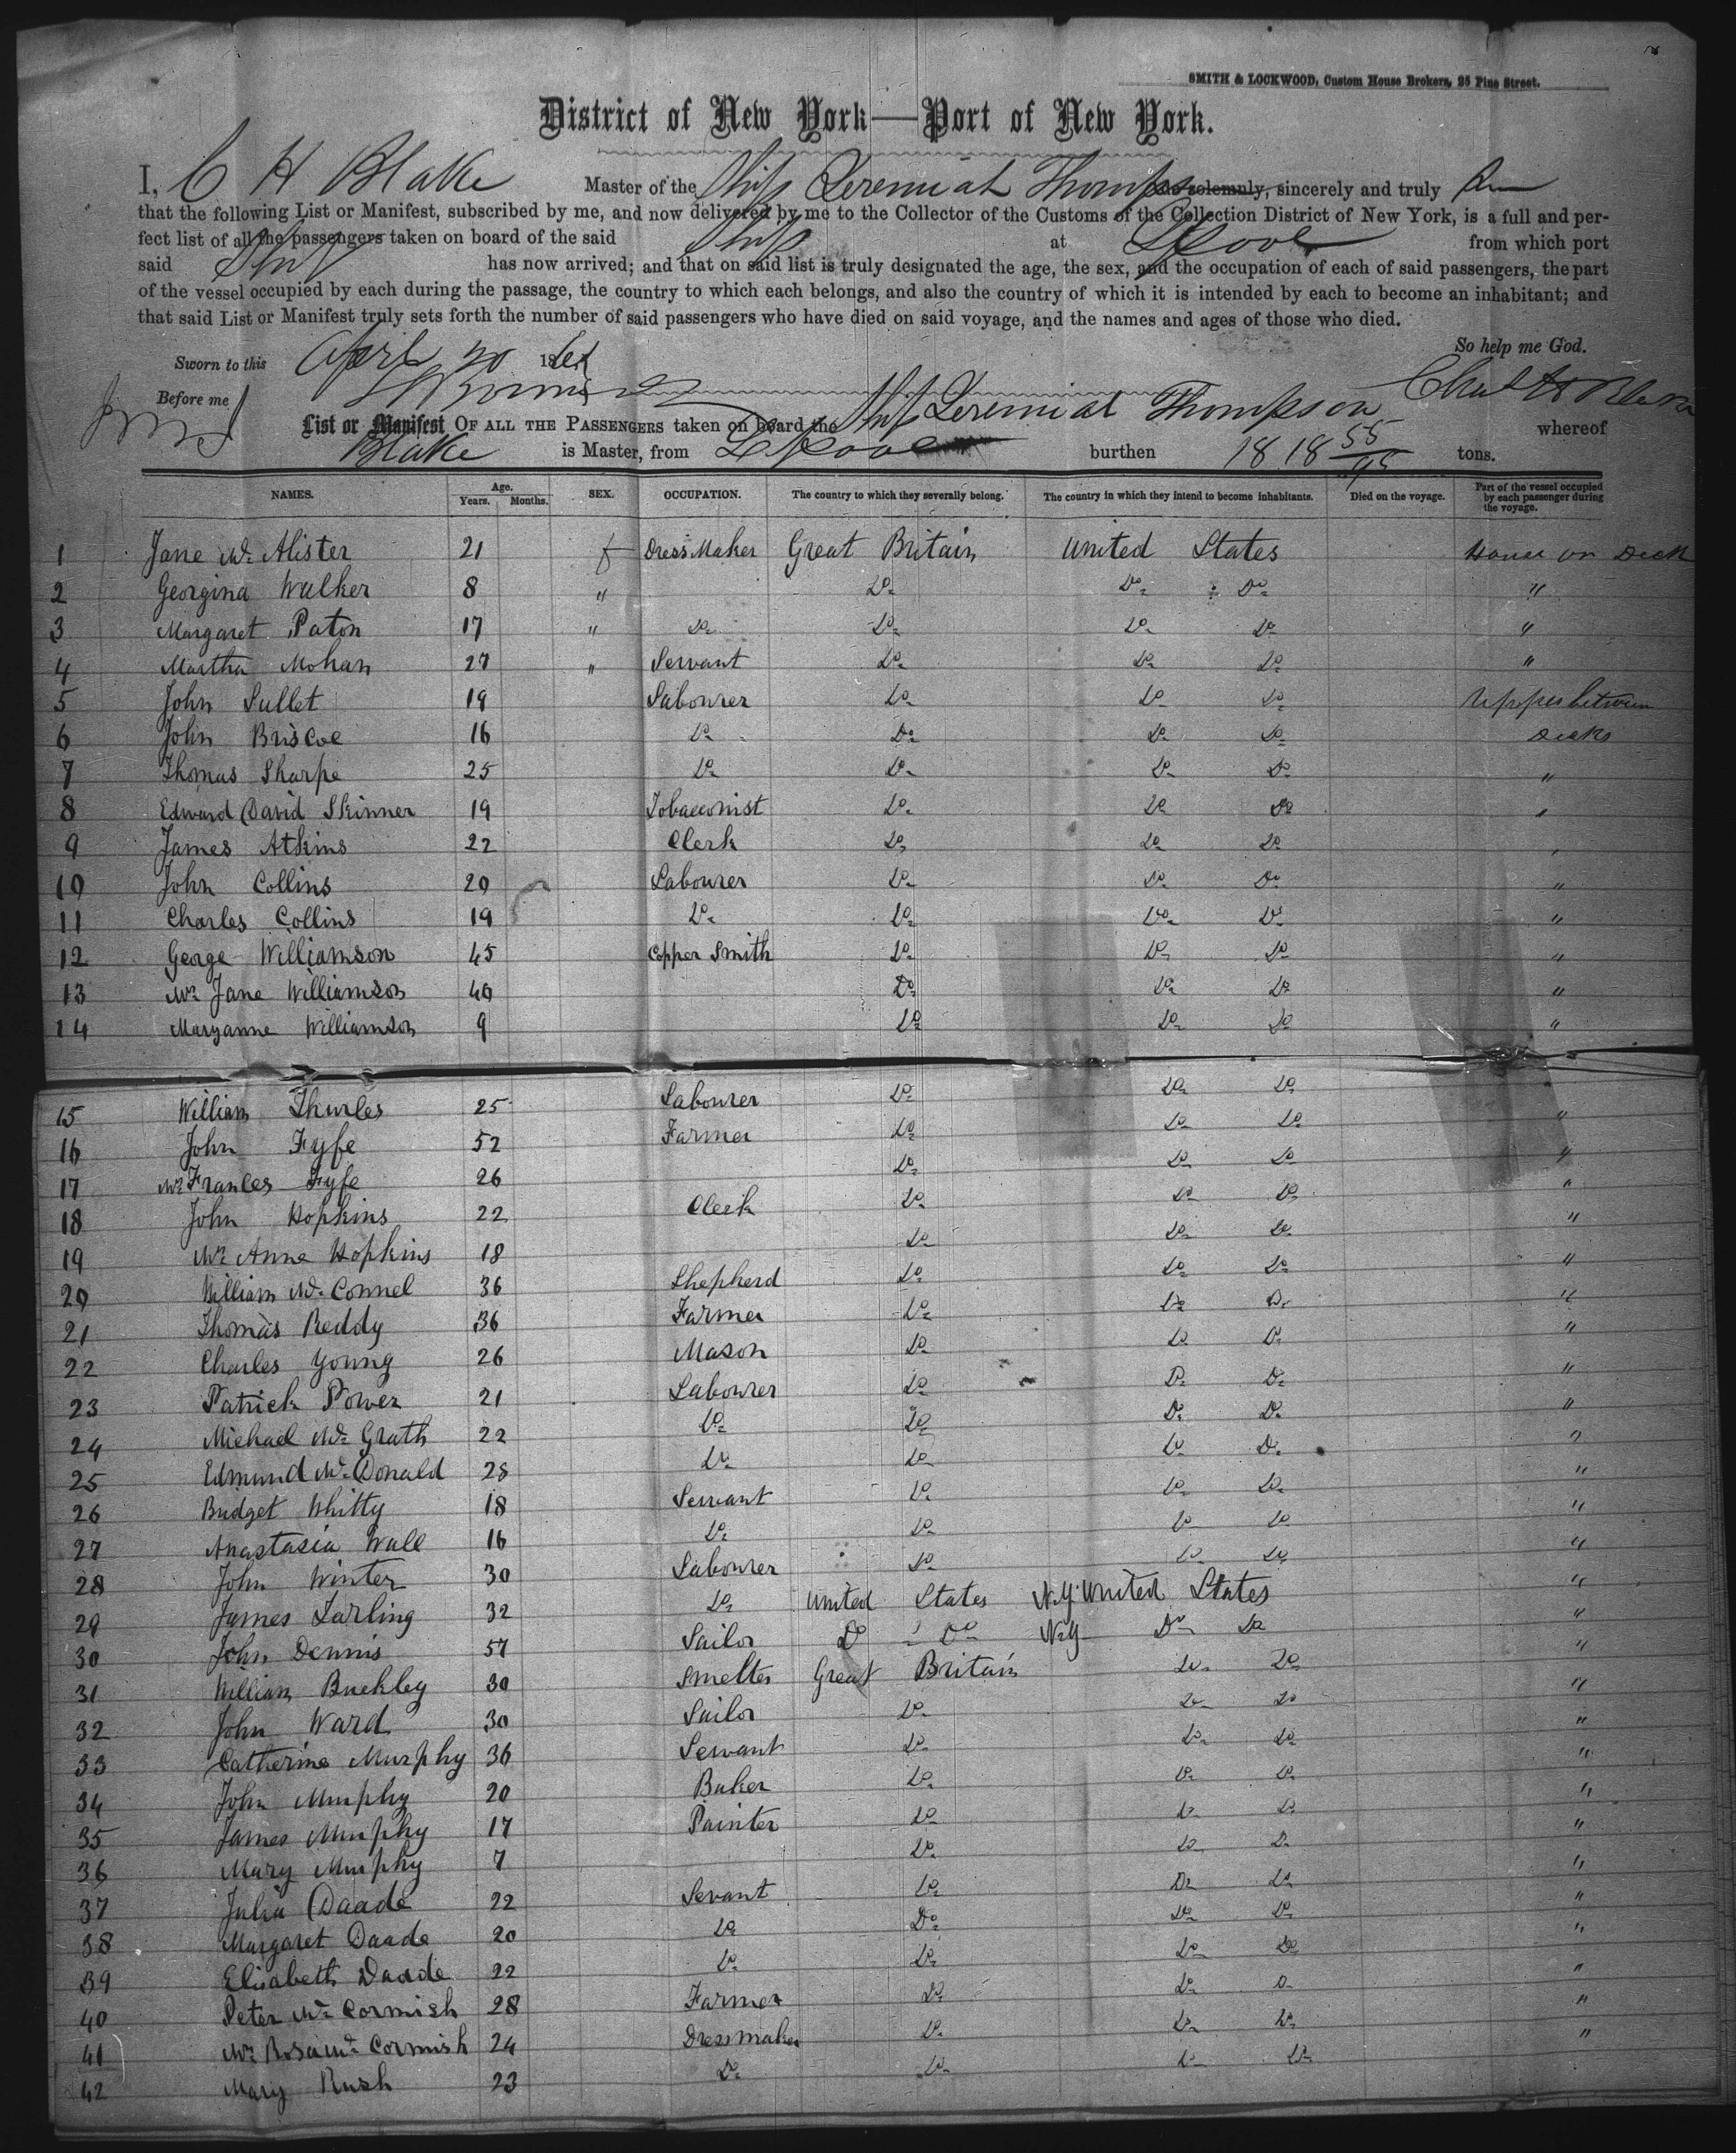 SMITH & LOCKWOOD, Custom House Brokers, 25 Pine Street.
District of New York—Port of New York.
I, C H Blake Master of the Ship Jeremiah Thompson do solemnly, sincerely and truly
that the following List or Manifest, subscribed by me, and now delivered by me to the Collector of the Customs of the Collection District of New York, is a full and per-
fect list of all the passengers taken on board of the said Ship at Lpool from which port
said Ship has now arrived; and that on said list is truly designated the age, the sex, and the occupation of each of said passengers, the part
of the vessel occupied by each during the passage, the country to which each belongs, and also the country of which it is intended by each to become an inhabitant; and
that said List or Manifest truly sets forth the number of said passengers who have died on said voyage, and the names and ages of those who died.
So help me God.
Sworn to this April 20 186
Before me
List or Manifest OF ALL THE PASSENGERS taken on board the Ship Jeremiah Thompson whereof
Blake is Master, from Lpool burthen 1818 55/95 tons.
NAMES. Age. Years. Months. SEX. OCCUPATION. The country to which they severally belong. The country in which they intend to become inhabitants. Died on the voyage. Part of the vessel occupied by each passenger during the voyage.
1 Jane Mc Alister 21 f Dress Maker Great Britain United States House on Deck
2 Georgina Walker 8 " Do Do Do "
3 Margaret Paton 17 " Do Do Do Do "
4 Martha Mohan 27 " Servant Do Do Do "
5 John Sullet 19 Labourer Do Do Do Upper between
6 John Briscoe 16 Do Do Do Do Decks
7 Thomas Sharpe 25 Do Do Do Do "
8 Edward David Skinner 19 Tobacconist Do Do Do "
9 James Atkins 22 Clerk Do Do Do "
10 John Collins 20 Labourer Do Do Do "
11 Charles Collins 19 Do Do Do Do "
12 George Williamson 45 Copper Smith Do Do Do "
13 Mrs Jane Williamson 40 Do Do Do "
14 Maryanne Williamson 9 Do Do Do "
15 William Thurles 25 Labourer Do Do Do "
16 John Fyfe 52 Farmer Do Do Do "
17 Mrs Frances Fyfe 26 Do Do Do "
18 John Hopkins 22 Clerk Do Do Do "
19 Mrs Anne Hopkins 18 Do Do Do "
20 William Mc Connel 36 Shepherd Do Do Do "
21 Thomas Reddy 36 Farmer Do Do Do "
22 Charles Young 26 Mason Do Do Do "
23 Patrick Power 21 Labourer Do Do Do "
24 Michael Mc Grath 22 Do Do Do Do "
25 Edmund Mc Donald 28 Do Do Do Do "
26 Bridget Whitty 18 Servant Do Do Do "
27 Anastasia Wall 16 Do Do Do Do "
28 John Winter 30 Labourer Do Do Do "
29 James Tarling 32 Do United States N.Y. United States "
30 John Dennis 57 Sailor Do Do N.Y Do Do "
31 William Buckley 30 Smelter Great Britain Do Do "
32 John Ward 30 Sailor Do Do Do "
33 Catherine Murphy 36 Servant Do Do Do "
34 John Murphy 20 Baker Do Do Do "
35 James Murphy 17 Painter Do Do Do "
36 Mary Murphy 7 Do Do Do "
37 Julia Daade 22 Sevant Do Do Do "
38 Margaret Daade 20 Do Do Do Do "
39 Elisabeth Daade 22 Do Do Do Do "
40 Peter Mc Cormish 28 Farmer Do Do Do "
41 Mrs Rosa Mc Cormish 24 Dressmaker Do Do Do "
42 Mary Rush 23 Do Do Do Do